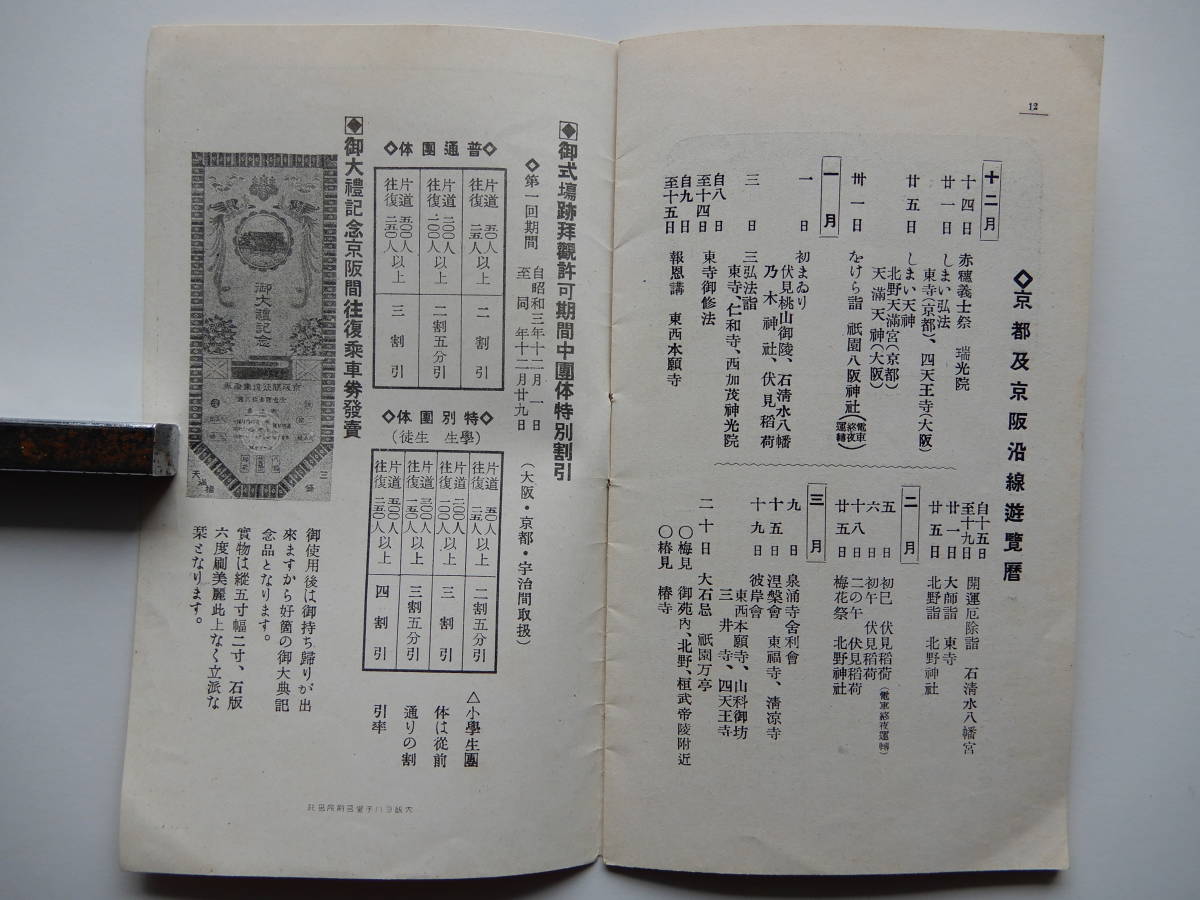 12
◇京都及京阪沿線遊覽曆
十二月
十四日 赤穗義士祭 瑞光院
廿一日 しまい弘法
東寺(京都)、四天王寺(大阪)
廿五日 しまい天神
北野天滿宮(京都)
天滿天神(大阪)
卅一日 をけら詣 祇園八阪神社(電車終夜運轉)
一月
一日 初まゐり
伏見桃山御陵、石淸水八幡
乃木神社、伏見稻荷
三日 三弘法詣
東寺、仁和寺、西加茂神光院
自八日
至十四日 東寺御修法
自九日
至十五日 報恩講 東西本願寺
自十五日
至十九日 開運厄除詣 石淸水八幡宮
廿一日 大師詣 東寺
廿五日 北野詣 北野神社
二月
五日 初巳 伏見稻荷(電車終夜運轉)
六日 初午 伏見稻荷
十八日 二の午 伏見稻荷
廿五日 梅花祭 北野神社
三月
九日 泉涌寺舍利會
十五日 涅槃會 東福寺、淸凉寺
十九日 彼岸會 東西本願寺、山科御坊
三井寺、四天王寺
二十日 大石忌 祇園万亭
〇梅見 御苑內、北野、桓武帝陵附近
〇椿見 椿寺
◆御式塲跡拜觀許可期間中團体特別割引
◇第一回期間 自昭和三年十二月一日
至同年十二月廿九日 (大阪・京都・宇治間取扱)
◇普通團体◇
片道 五〇人以上
往復 二五人以上 二割引
片道 二〇〇人以上
往復 一〇〇人以上 二割五分引
片道 五〇〇人以上
往復 二五〇人以上 三割引
◇特別團体◇
(學生 生徒)
片道 五〇人以上
往復 二五人以上 二割五分引
片道 二〇〇人以上
往復 一〇〇人以上 三割引
片道 三〇〇人以上
往復 一五〇人以上 三割五分引
片道 五〇〇人以上
往復 二五〇人以上 四割引
△小學生團
体は從前
通りの割
引率
◆御大禮記念京阪間往復乘車券發賣
御大禮記念
三條
天滿橋
御使用後は御持ち歸りが出
來ますから好箇の御大典記
念品となります。
實物は縱五寸幅二寸、石版
六度刷美麗此上なく立派な
栞となります。